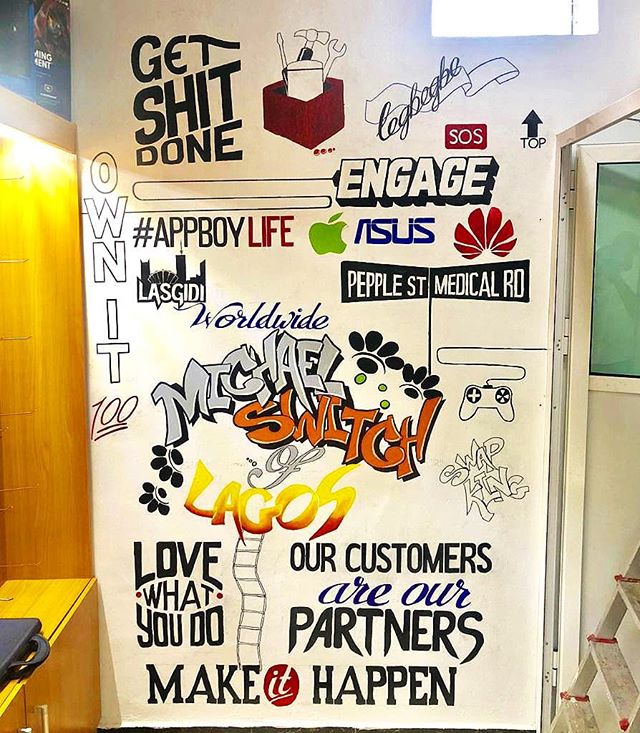 MING
MENT
GET
SHIT
DONE
legbegbe
SOS
TOP
ENGAGE
OWN IT
100
#APPBOYLIFE
ASUS
LASGIDI
PEPPLE ST MEDICAL RD
Worldwide
MICHAEL
SWITCH
of
LAGOS
SWAP
KING
LOVE
WHAT
YOU DO
OUR CUSTOMERS
are our
PARTNERS
MAKE it HAPPEN